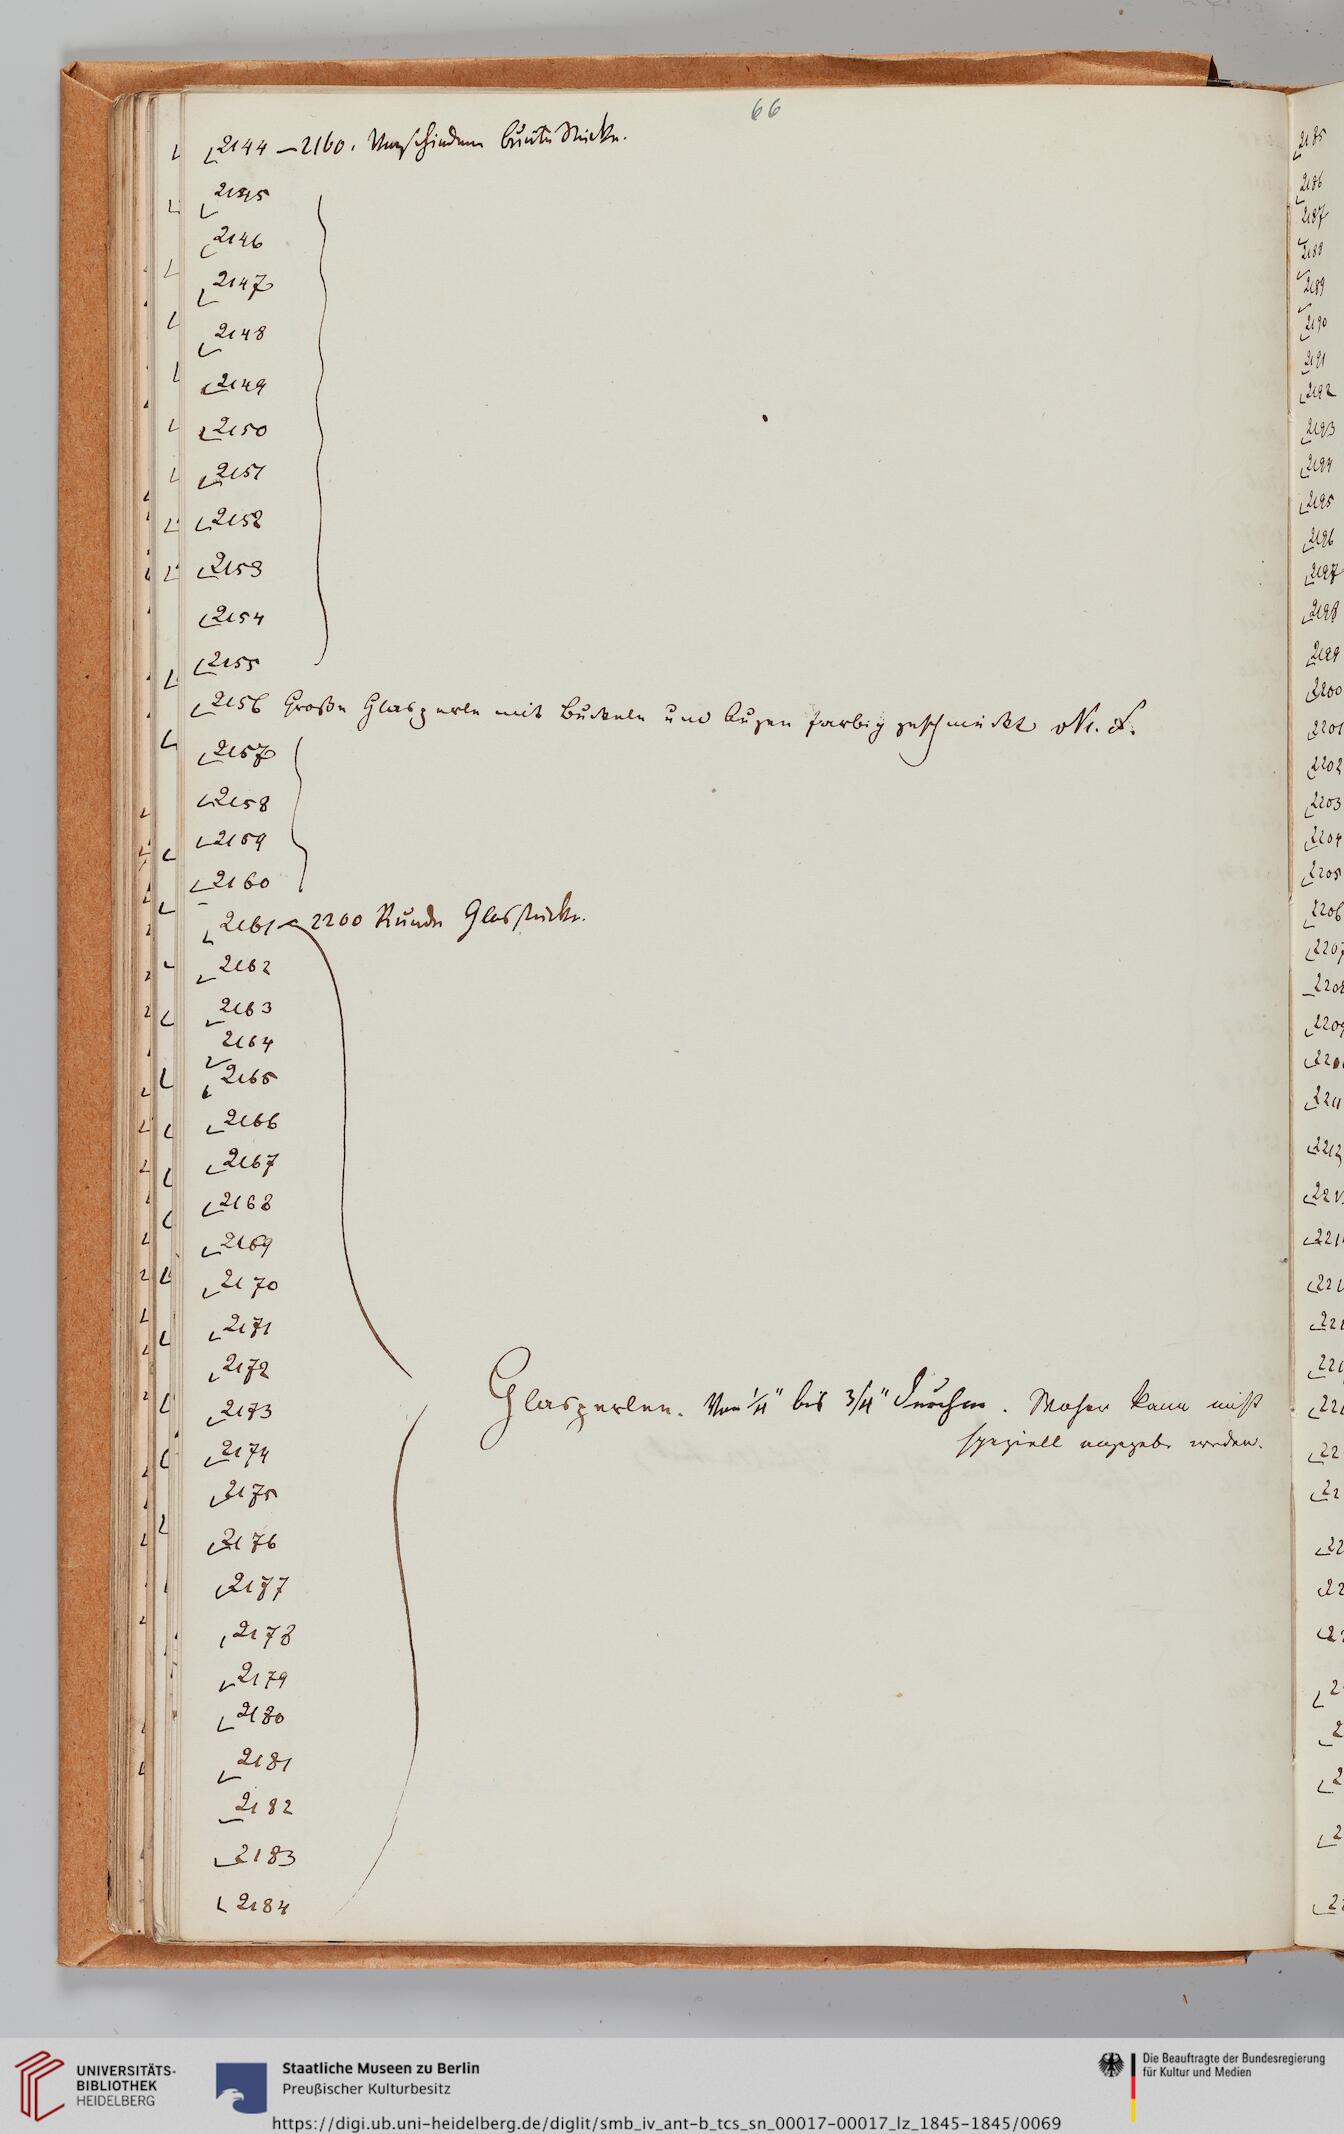 66
2144 – 2160. Verschiedene bunte Stücke.
2145
2146
2147
2148
2149
2150
2151
2152
2153
2154
2155
2156 Große Glasperle mit Buckeln und Augen farbig geschmückt
2157
2158
2159
2160
2161 – 2200 Runde Glasstücke.
2162
2163
2164
2165
2166
2167
2168
2169
2170
2171
2172
2173
Glasperlen. Von 1/4" bis 3/4" Durchm. Woher kann nicht
speziell angegeb. werden.
2174
2175
2176
2177
2178
2179
2180
2181
2182
2183
2184
2185
2186
2187
2188
2189
2190
2191
2192
2193
2194
2195
2196
2197
2198
2199
2200
2201
2202
2203
2204
2205
2206
2207
UNIVERSITÄTS-
BIBLIOTHEK
HEIDELBERG
Staatliche Museen zu Berlin
Preußischer Kulturbesitz
https://digi.ub.uni-heidelberg.de/diglit/smb_iv_ant-b_tcs_sn_00017-00017_lz_1845-1845/0069
Die Beauftragte der Bundesregierung
für Kultur und Medien